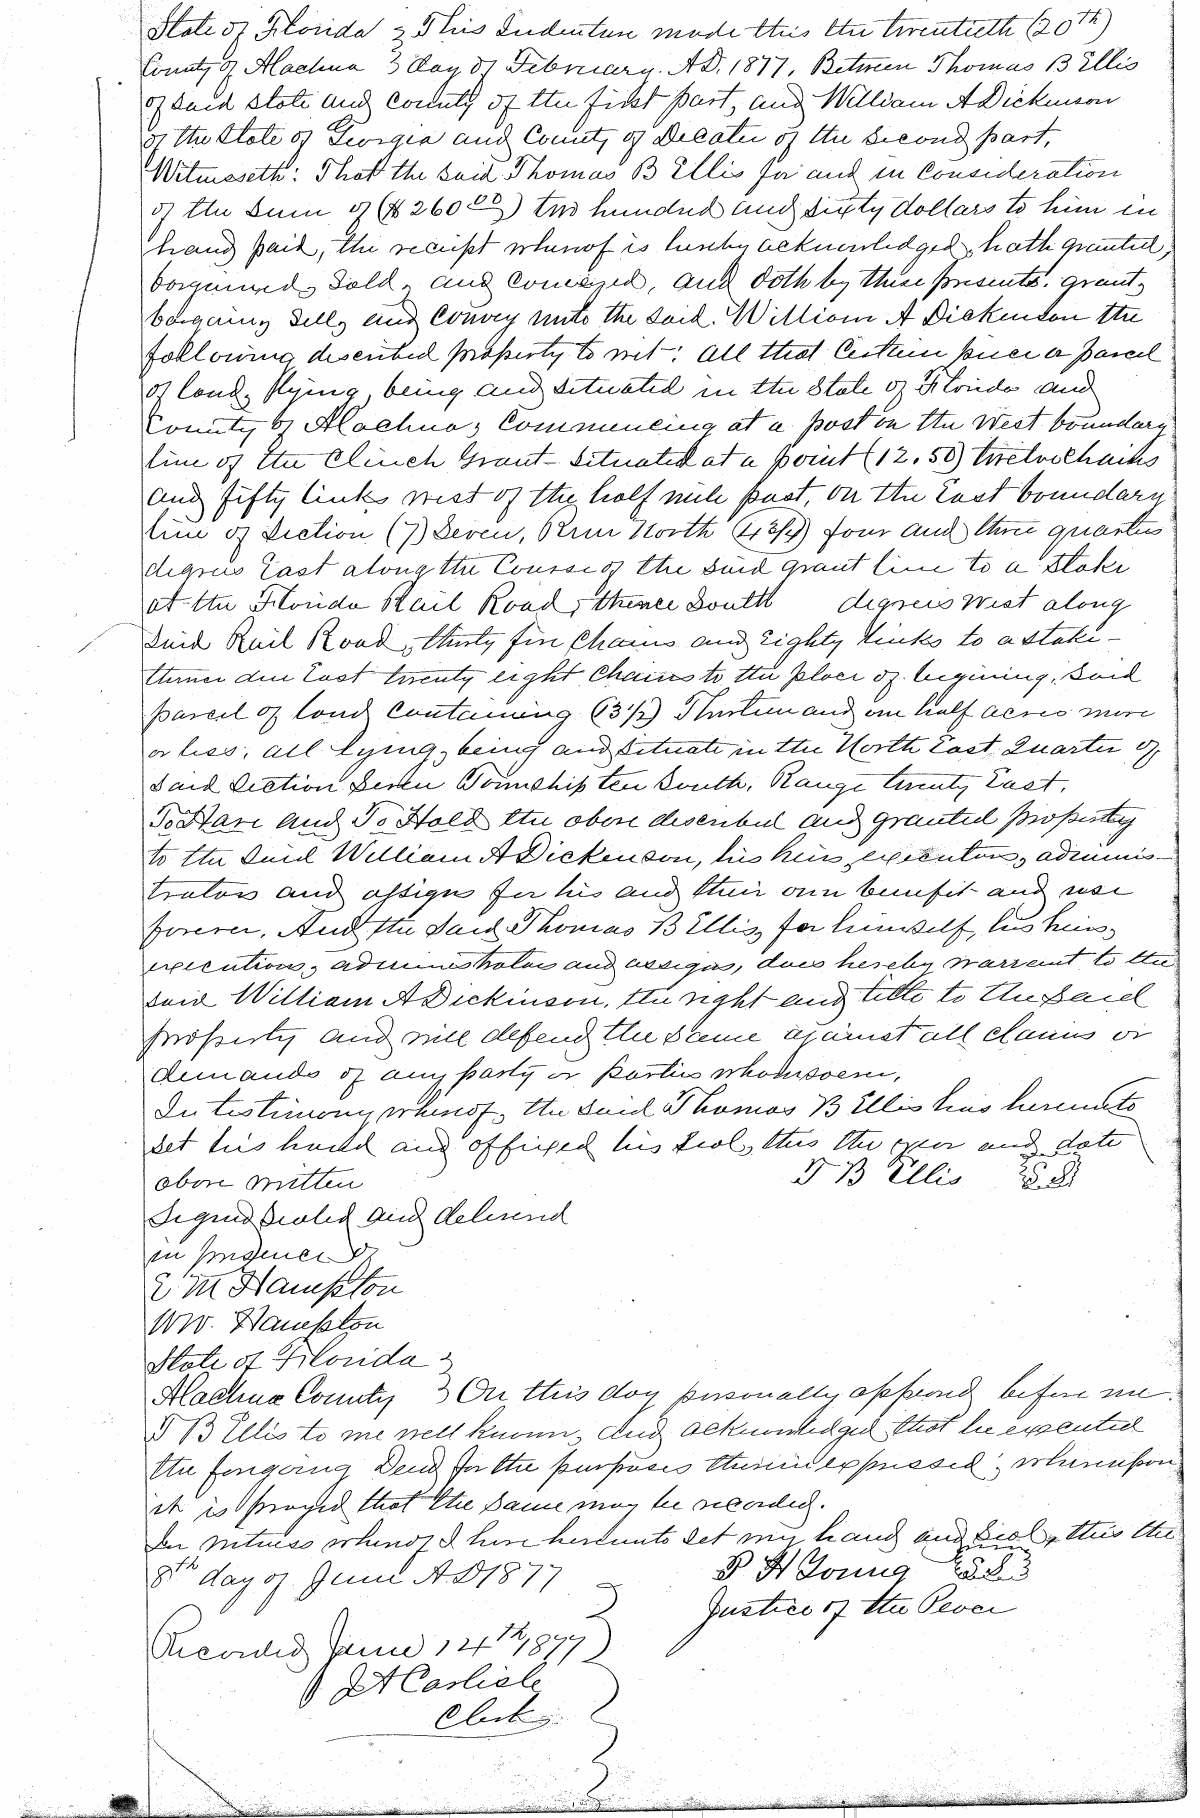 State of Florida } This Indenture made this the twentieth (20th)
County of Alachua } day of February. A.D. 1877, Between Thomas B Ellis
of said State and County of the first part, and William A Dickinson
of the State of Georgia and County of Decater of the second part,
Witnesseth: That the said Thomas B Ellis for and in consideration
of the sum of ($260.00) two hundred and sixty dollars to him in
hand paid, the receipt whereof is hereby acknowledged, hath granted,
bargained, Sold, and Conveyed, and doth by these presents. grant,
bargain, Sell, and Convey unto the said. William A Dickenson the
following described property to wit: all that Certain piece or parcel
of land, lying, being and situated in the State of Florida and
County of Alachua; Commencing at a post on the West boundary
line of the Clinch Grant - situated at a point (12.50) twelve chains
and fifty links west of the half mile post, on the East boundary
line of Section (7) Seven, Run North (4 3/4) four and three quarters
degrees East along the Course of the said grant line to a Stake
at the Florida Rail Road, thence South degrees West along
said Rail Road, thirty five Chains and Eighty links to a stake -
thence due East twenty eight chains to the place of begining. said
parcel of land containing (13 1/2) Thirteen and one half acres more
or less. all lying, being and situate in the North East Quarter of
said Section Seven Township ten South, Range twenty East.
To Have and To Hold the above described and granted property
to the said William A Dickenson, his heirs, executors, adminis-
trators and assigns for his and their own benefit and use
forever. And the said Thomas B Ellis, for himself, his heirs,
executions, administrators and assigns, does hereby warrant to the
said William A Dickinson, the right and title to the said
property and will defend the same against all claims or
demands of any party or parties whomsoever.
In testimony whereof, the said Thomas B Ellis has hereunto
set his hand and affixed his Seal, this the year and date
above written T B Ellis
Signed Sealed and delivered
in presence of
E M Hampton
W W. Hampton
State of Florida }
Alachua County } On this day personally appeared before me
T B Ellis to me well known, and acknowledged that he executed
the forgoing Deed for the purposes therein expressed; whereupon
it is prayed that the same may be recorded.
In witness whereof I have hereunto set my hand and Seal, this the
8th day of June A D 1877 P H Young
Justice of the Peace
Recorded June 14th, 1877
J A Carlisle
Clerk